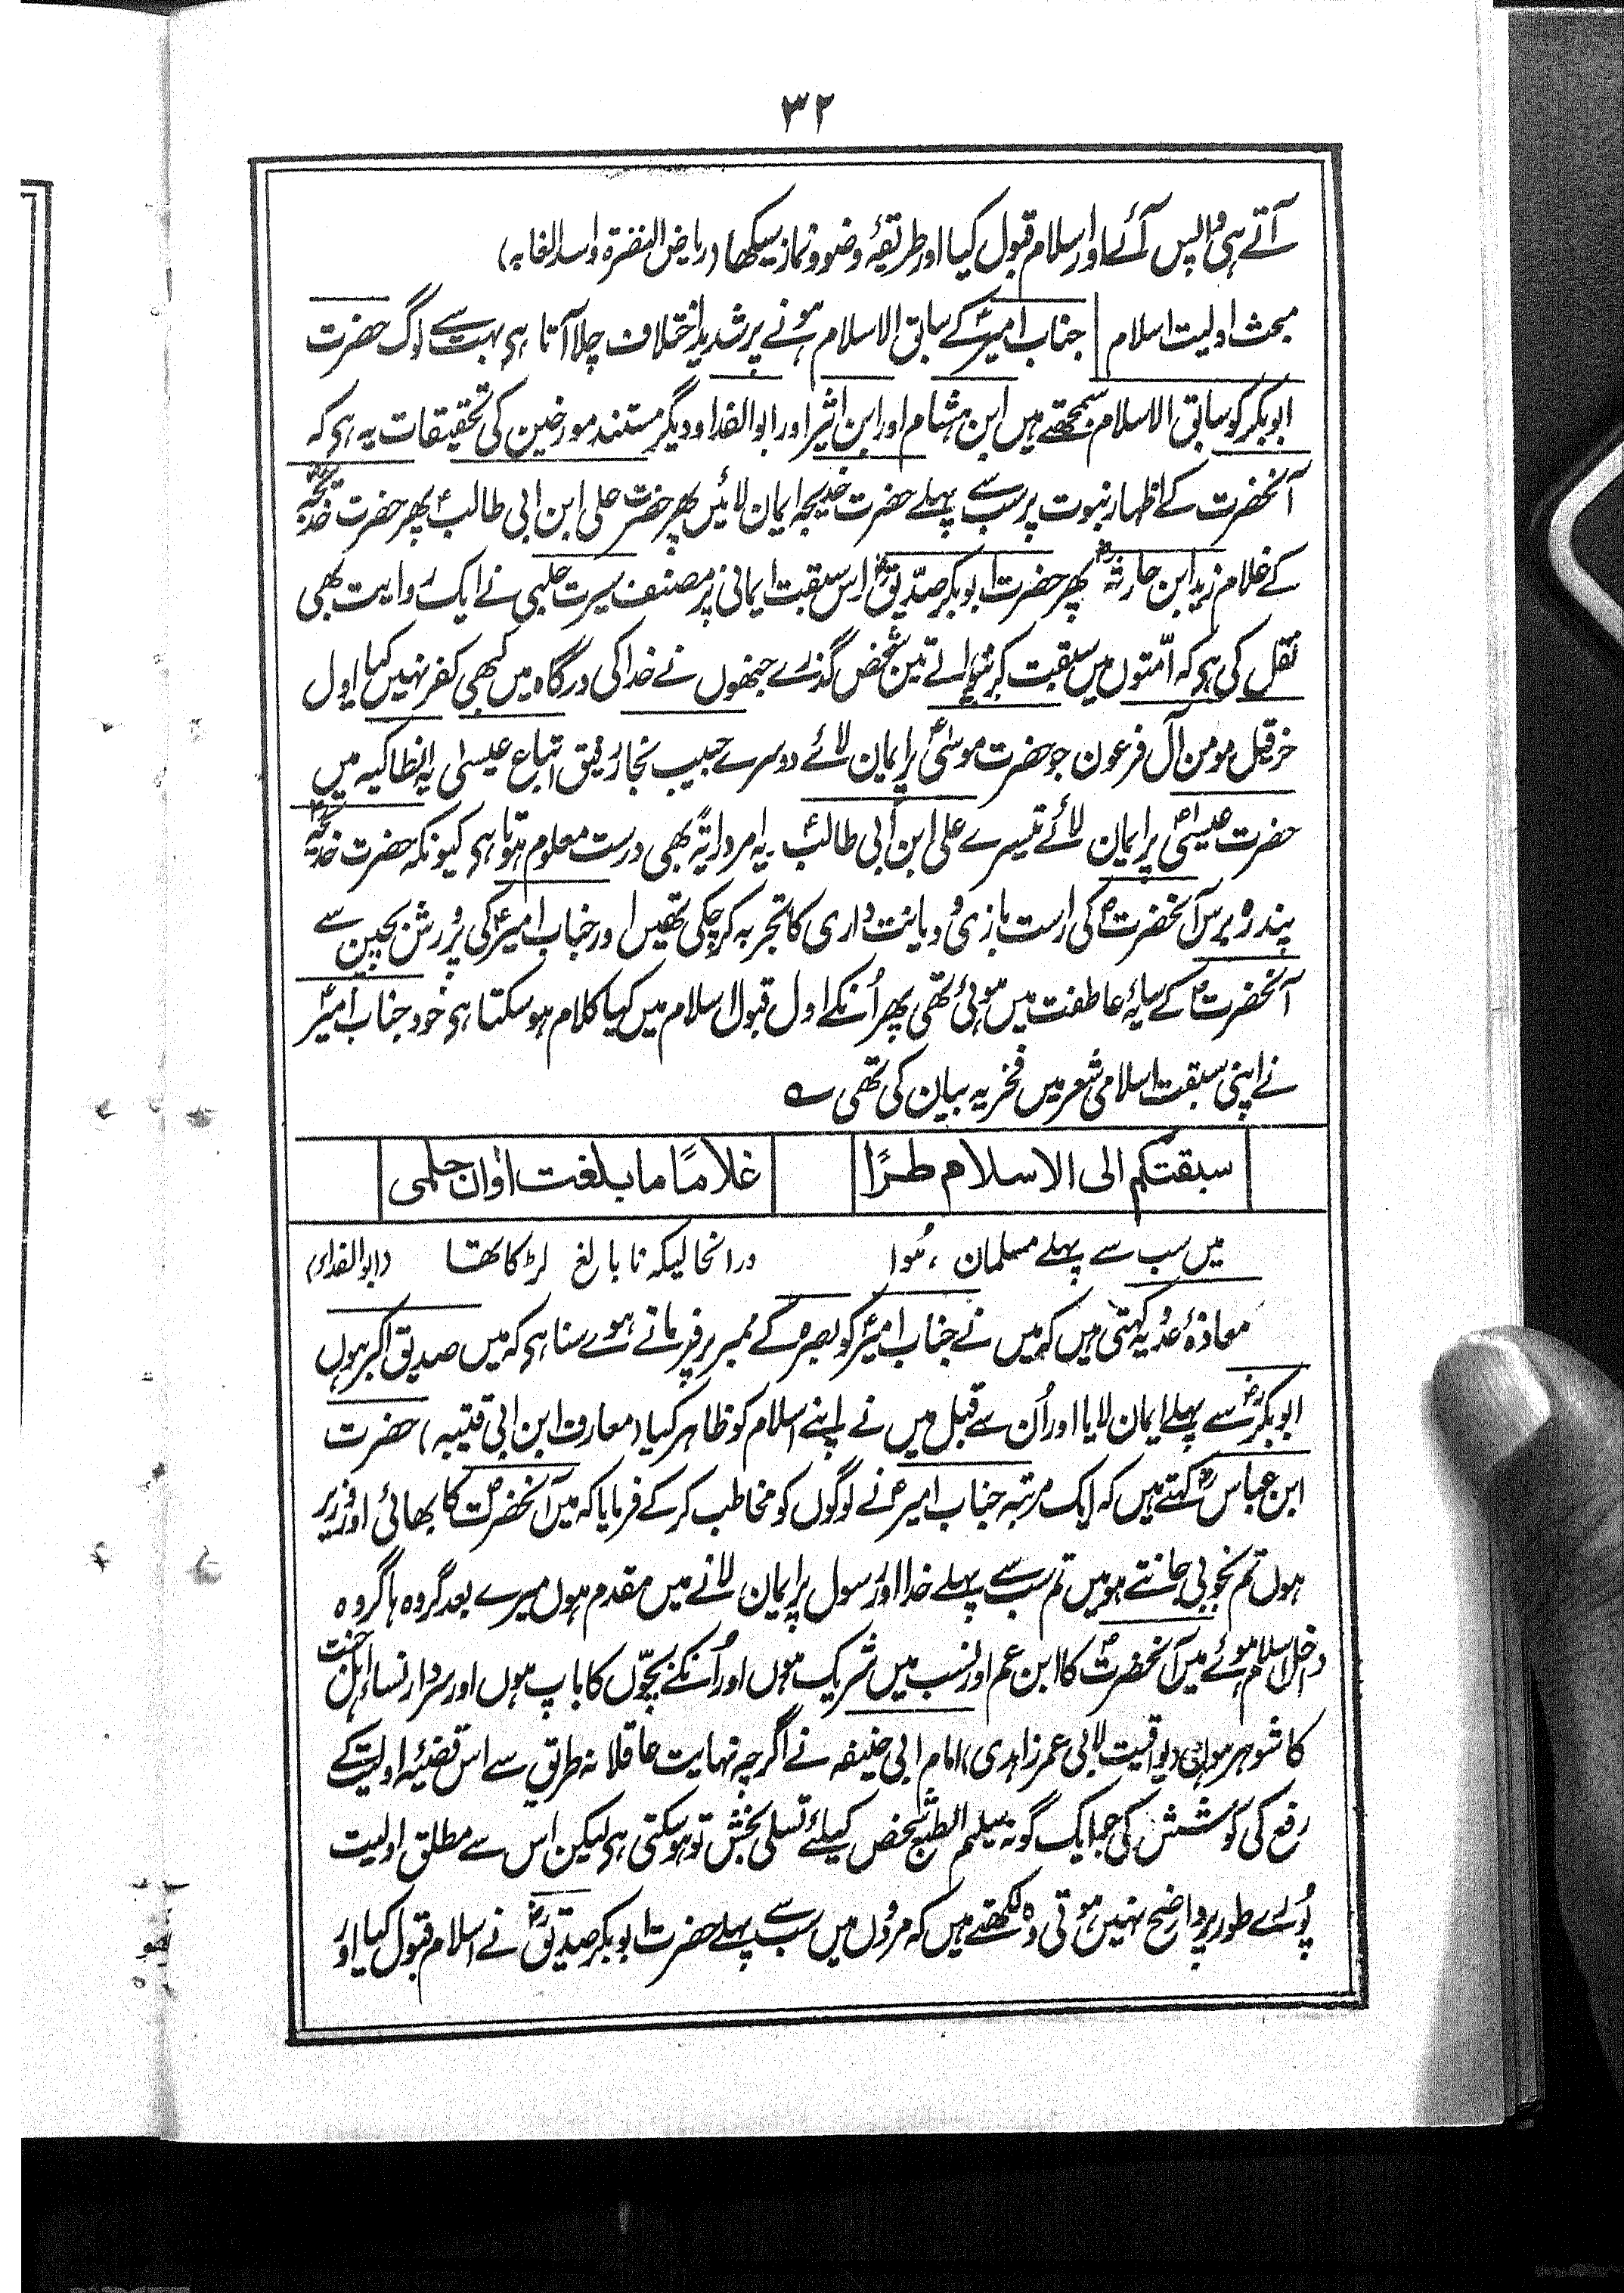 ۳۲
آتے ہی واپس آئے اور اسلام قبول کیا اور طریقۂ وضو و نماز سیکھا (ریاض النضرۃ و اسد الغابہ)
مبحث اولیت اسلام | جناب امیرؑ کے سابق الاسلام ہونے پر شدید اختلاف چلا آتا ہی بہت سے لوگ حضرت
ابوبکر کو سابق الاسلام سمجھتے ہیں ابن ہشام اور ابن اثیر اور ابو الفدا و دیگر مستند مورخین کی تحقیقات یہ ہی کہ
آنحضرت کے اظہار نبوت پر سب سے پہلے حضرت خدیجہ ایمان لائیں پھر حضرت علی ابن ابی طالبؑ پھر حضرت خدیجہؓ
کے غلام زید ابن حارثہؓ پھر حضرت ابوبکر صدیقؓ اس سبقت ایمانی پر مصنف سیرت حلبی نے ایک روایت بھی
نقل کی ہی کہ امّتوں میں سبقت کرنیوالے تین شخص گذرے جنھوں نے خدا کی درگاہ میں کبھی کفر نہیں کیا اول
خرقیل مومن آل فرعون جو حضرت موسیٰؑ پر ایمان لائے دوسرے حبیب نجار رفیق اتباع عیسیٰ یہ انطاکیہ میں
حضرت عیسیٰؑ پر ایمان لائے تیسرے علی ابن ابی طالبؑ ۔ یہ امر درایۃً بھی درست معلوم ہوتا ہی کیونکہ حضرت خدیجہؓ
پندرہ برس آنحضرتؐ کی راست بازی و دیانت داری کا تجربہ کر چکی تھیں اور جناب امیرؑ کی پرورش بچپن سے
آنحضرتؐ کے سایۂ عاطفت میں ہوئی تھی پھر اُنکے اول قبول اسلام میں کیا کلام ہو سکتا ہی خود جناب امیرؑ
نے اپنی سبقت اسلامی شعر میں فخریہ بیان کی تھی ؎
سبقتکم الی الاسلام طرًا | غلامًا ما بلغت اوان حلمی
میں سب سے پہلے مسلمان ہُوا درانحالیکہ نابالغ لڑکا تھا (ابو الفداء)
معاذۂ عدویہ کہتی ہیں کہ میں نے جناب امیرؑ کو بصرہ کے ممبر پر فرماتے ہوئے سنا ہی کہ میں صدیق اکبر ہوں
ابوبکرؓ سے پہلے ایمان لایا اور اُن سے قبل میں نے اپنے اسلام کو ظاہر کیا (معارف ابن ابی قتیبہ) حضرت
ابن عباسؓ کہتے ہیں کہ ایک مرتبہ جناب امیرؑ نے لوگوں کو مخاطب کر کے فرمایا کہ میں آنحضرتؐ کا بھائی اور وزیر
ہوں تم بخوبی جانتے ہو میں تم سب سے پہلے خدا اور رسول پر ایمان لانے میں مقدم ہوں میرے بعد گروہ ہا گروہ
داخل اسلام ہوئے میں آنحضرتؐ کا ابن عم اور نسب میں شریک ہوں اور اُنکے بچّوں کا باپ ہوں اور سردار نساء اہل جنت
کا شوہر ہوں (یواقیت لابی عمر زاہدی) امام ابی حنیفہ نے اگرچہ نہایت عاقلانہ طریق سے اس قضئیہ اولیت کے
رفع کی کوشش کی جو ایک گونہ سلیم الطبع شخص کیلئے تسلی بخش تو ہو سکتی ہی لیکن اس سے مطلق اولیت
پُورے طور پر واضح نہیں ہوتی وہ لکھتے ہیں کہ مردوں میں سب سے پہلے حضرت ابوبکر صدیقؓ نے اسلام قبول کیا اور